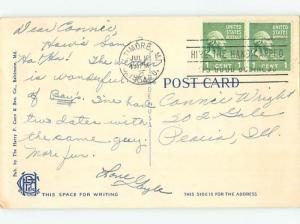 Dear Connie,
How's Sam
Ha! Ha! The
is wonderful
of Boy's. I've had
two dates with
the same guy.
More fun.
Love
Gayle
MORE, MD.
JUL
POST CARD
HIRE THE HANDICAPPED
IT'S GOOD BUSINESS
1 CENT 1
1 CENT 1
Connie Wright
302 Gale
Peoria, Ill.
Pub. by The Harry P. Cann & Bro. Co., Baltimore, Md.
THIS SPACE FOR WRITING
THIS SIDE IS FOR THE ADDRESS